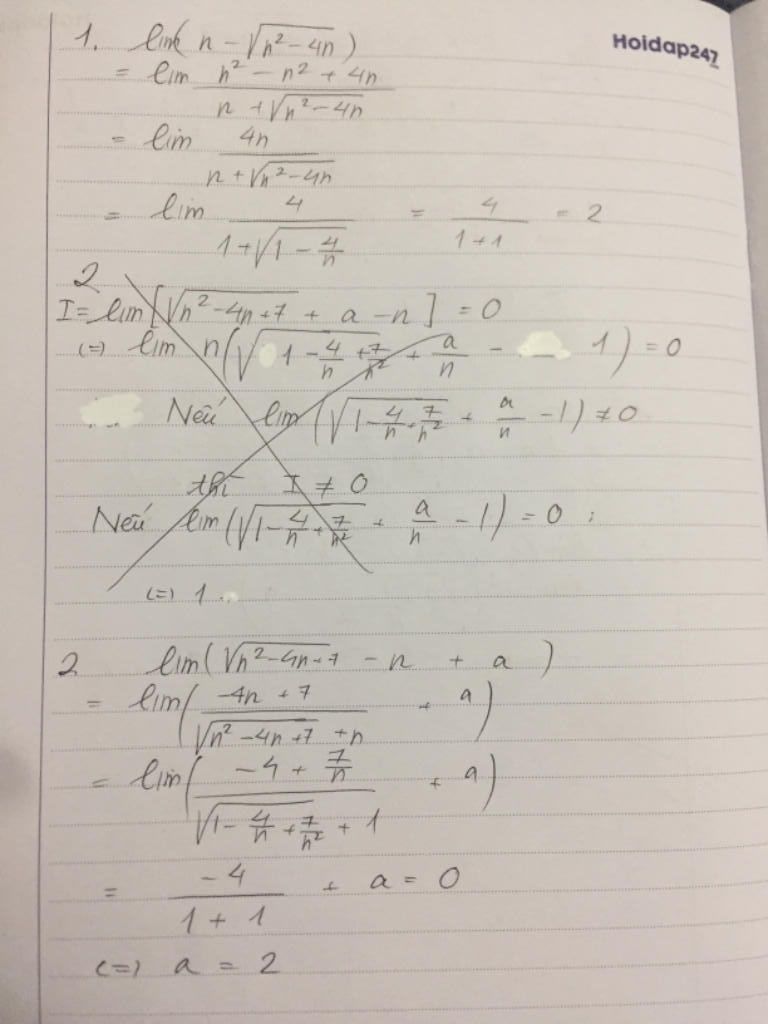 Hoidap247
1. lim( n - √(n² - 4n) )
= lim (n² - n² + 4n)/(n + √(n² - 4n))
= lim 4n/(n + √(n² - 4n))
= lim 4/(1 + √(1 - 4/n)) = 4/(1+1) = 2
2
I = lim[√(n² - 4n + 7) + a - n] = 0
(=) lim n(√(1 - 4/n + 7/n²) + a/n - 1) = 0
Nếu lim(√(1 - 4/n + 7/n²) + a/n - 1) ≠ 0
thì I ≠ 0
Nếu lim(√(1 - 4/n + 7/n²) + a/n - 1) = 0 ;
(=) 1
2 lim(√(n² - 4n + 7) - n + a)
= lim((-4n + 7)/(√(n² - 4n + 7) + n) + a)
= lim((-4 + 7/n)/(√(1 - 4/n + 7/n²) + 1) + a)
= -4/(1 + 1) + a = 0
(=) a = 2